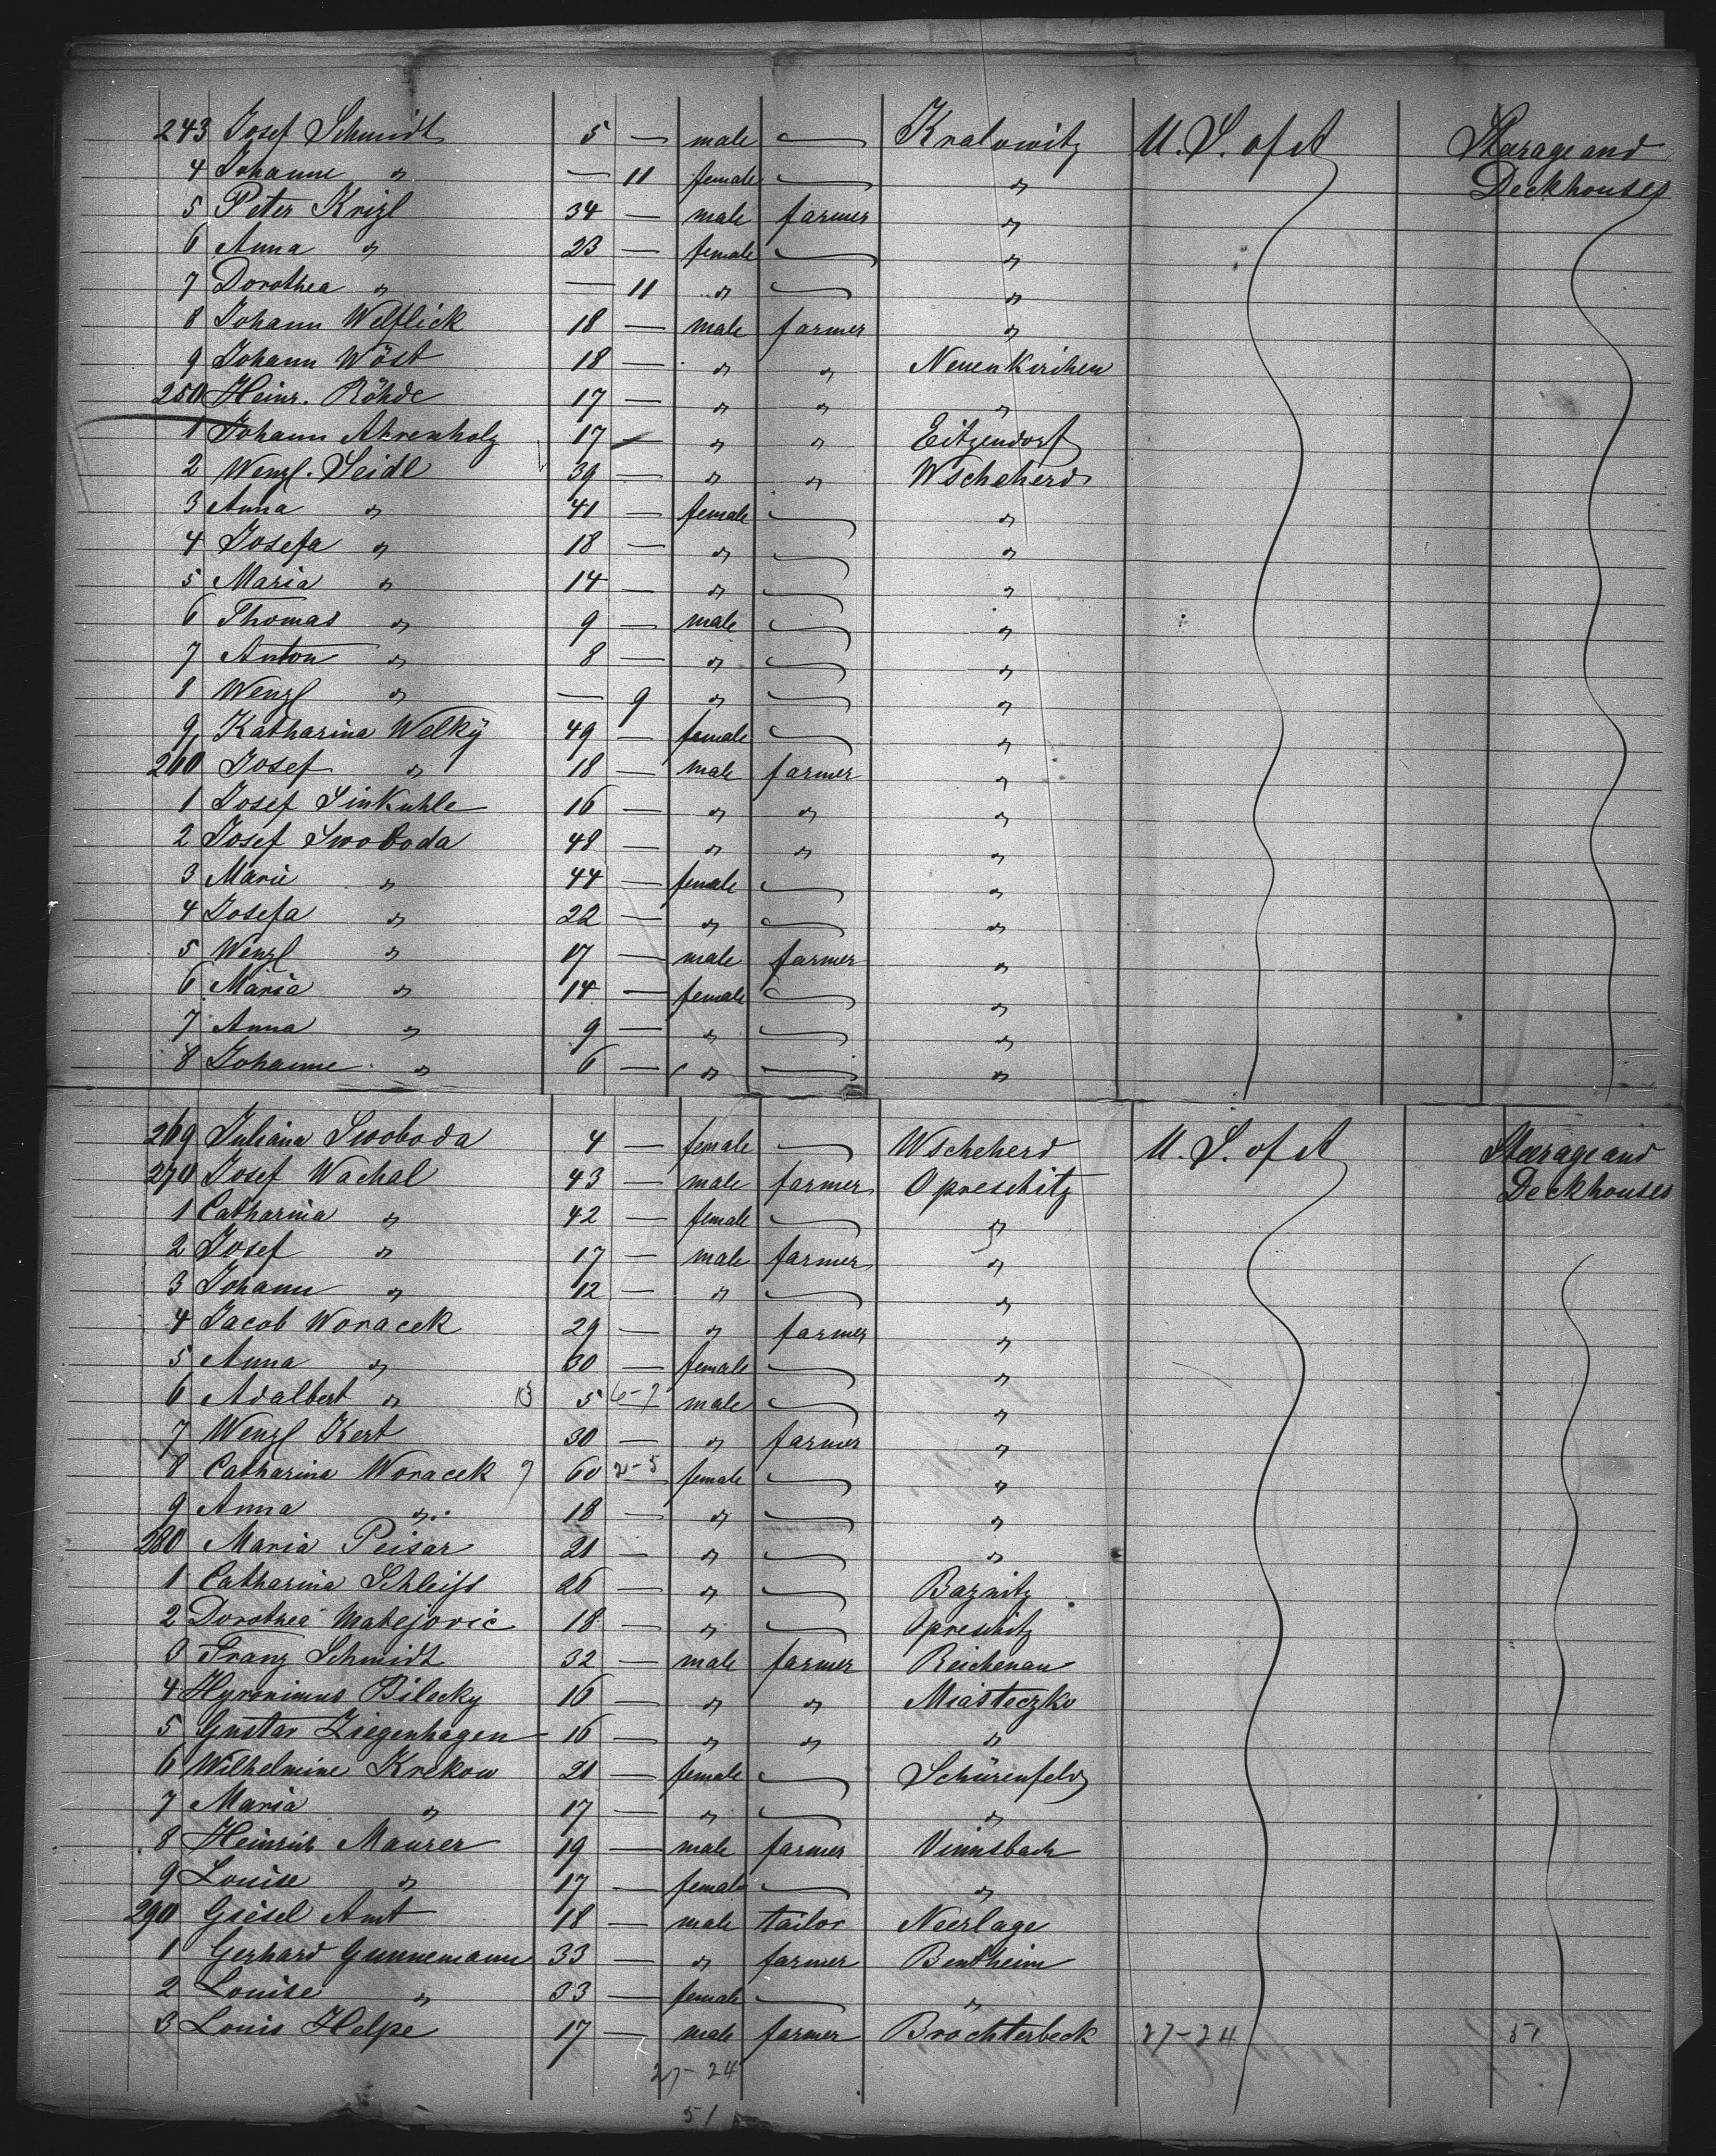 243 Josef Schmidt 5 — male — Kralowitz U. S. of A Steerage and
4 Johanne " — 11 female — " Deckhouses
5 Peter Krizl 34 — male farmer "
6 Anna " 23 — female — "
7 Dorothea " — 11 " — "
8 Johann Welflick 18 — male farmer "
9 Johann Wöst 18 — " " Neuenkirchen
250 Heinr. Röhde 17 — " " "
1 Johann Ahrenholz 17 — " " Eitzendorf
2 Wenzl. Seidl 39 — " " Wscheherd
3 Anna " 41 — female — "
4 Josefa " 18 — " — "
5 Maria " 14 — " — "
6 Thomas " 9 — male — "
7 Anton " 8 — " — "
8 Wenzl " — 9 " — "
9 Katharina Welky 49 — female — "
260 Josef " 18 — male farmer "
1 Josef Sinkuhle 16 — " " "
2 Josef Swoboda 48 — " " "
3 Marie " 44 — female — "
4 Josefa " 22 — " — "
5 Wenzl " 17 — male farmer "
6 Maria " 14 — female — "
7 Anna " 9 — " — "
8 Johanne " 6 — " — "
269 Juliana Swoboda 4 — female — Wscheherd U. S. of A Steerage and
270 Josef Wachal 43 — male farmer Opreschitz Deckhouses
1 Catharina " 42 — female — "
2 Josef " 17 — male farmer "
3 Johann " 12 — " — "
4 Jacob Woracek 29 — " farmer "
5 Anna " 30 — female — "
6 Adalbert " 5 6-7 male — "
7 Wenzl Kert 30 — " farmer "
8 Catharina Woracek 60 2-5 female — "
9 Anna " 18 — " — "
280 Maria Peisar 21 — " — "
1 Catharina Schleiss 26 — " — Baznitz
2 Dorothea Matejovic 18 — " — Opreschitz
3 Franz Schmidt 32 — male farmer Reichenau
4 Hyronimus Bilecky 16 — " " Miasteczko
5 Gustav Ziegenhagen 16 — " " "
6 Wilhelmine Krekow 21 — female — Schürenfeld
7 Maria " 17 — " — "
8 Heinrich Maurer 19 — male farmer Vinnsbach
9 Louise " 17 — female — "
290 Giesel Amt 18 — male tailor Neerlage
1 Gerhard Gunnemann 33 — " farmer Bentheim
2 Louise " 33 — female — "
3 Louis Helpe 17 — male farmer Brochterbeck 27-24 51
27-24
51